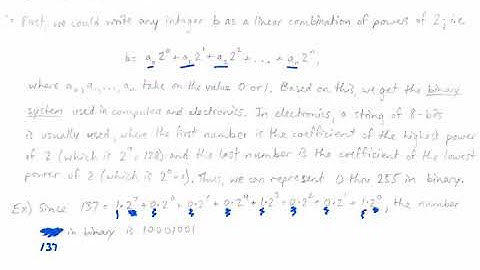 First, we could write any integer b as a linear combination of powers of 2; i.e.
b = a₀2⁰ + a₁2¹ + a₂2² + ... + aₙ2ⁿ,
where a₀, a₁, ..., aₙ take on the value 0 or 1. Based on this, we get the binary
system used in computers and electronics. In electronics, a string of 8-bits
is usually used, where the first number is the coefficient of the highest power
of 2 (which is 2⁷=128) and the last number is the coefficient of the lowest
power of 2 (which is 2⁰=1). Thus, we can represent 0 thru 255 in binary.
Ex) Since 137 = 1·2⁷ + 0·2⁶ + 0·2⁵ + 0·2⁴ + 1·2³ + 0·2² + 0·2¹ + 1·2⁰, the number
in binary is 10001001
137